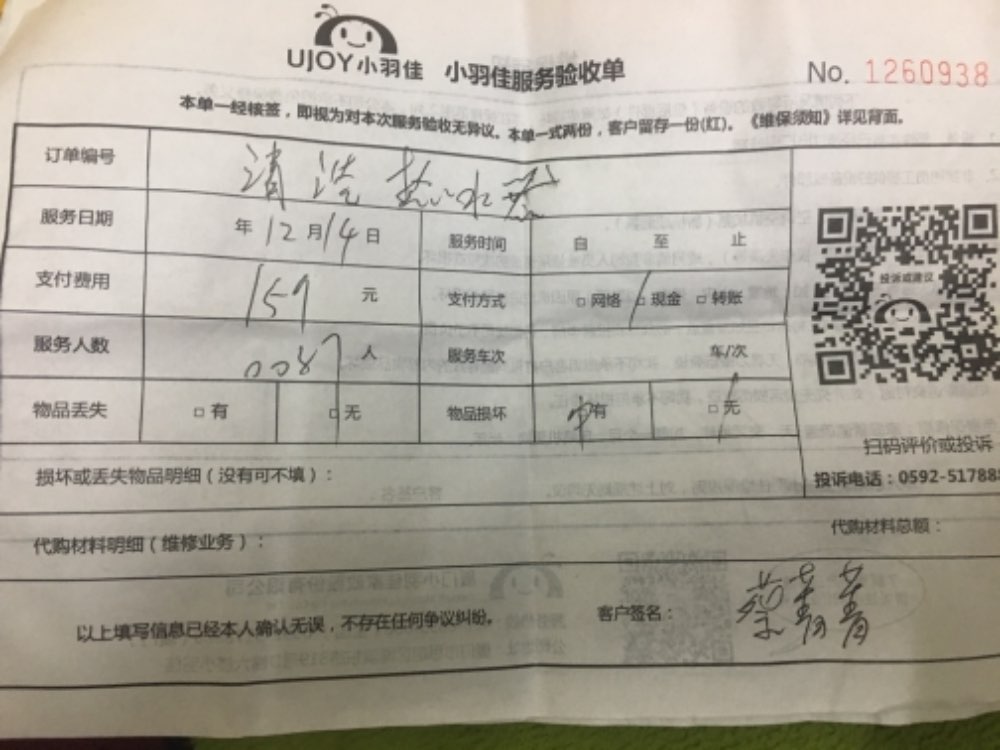 UJOY小羽佳 小羽佳服务验收单 No. 1260938
本单一经核签，即视为对本次服务验收无异议。本单一式两份，客户留存一份(红)。《维保须知》详见背面。
订单编号 清洗热水器
服务日期 年12月14日 服务时间 自 至 止
支付费用 159 元 支付方式 □网络 □现金 □转账
服务人数 0087 人 服务车次 车/次
物品丢失 □有 □无 物品损坏 □有 □无
投诉或建议
扫码评价或投诉
投诉电话：0592-517888
损坏或丢失物品明细（没有可不填）：
代购材料明细（维修业务）： 代购材料总额：
以上填写信息已经本人确认无误，不存在任何争议纠纷。 客户签名：蔡菁菁